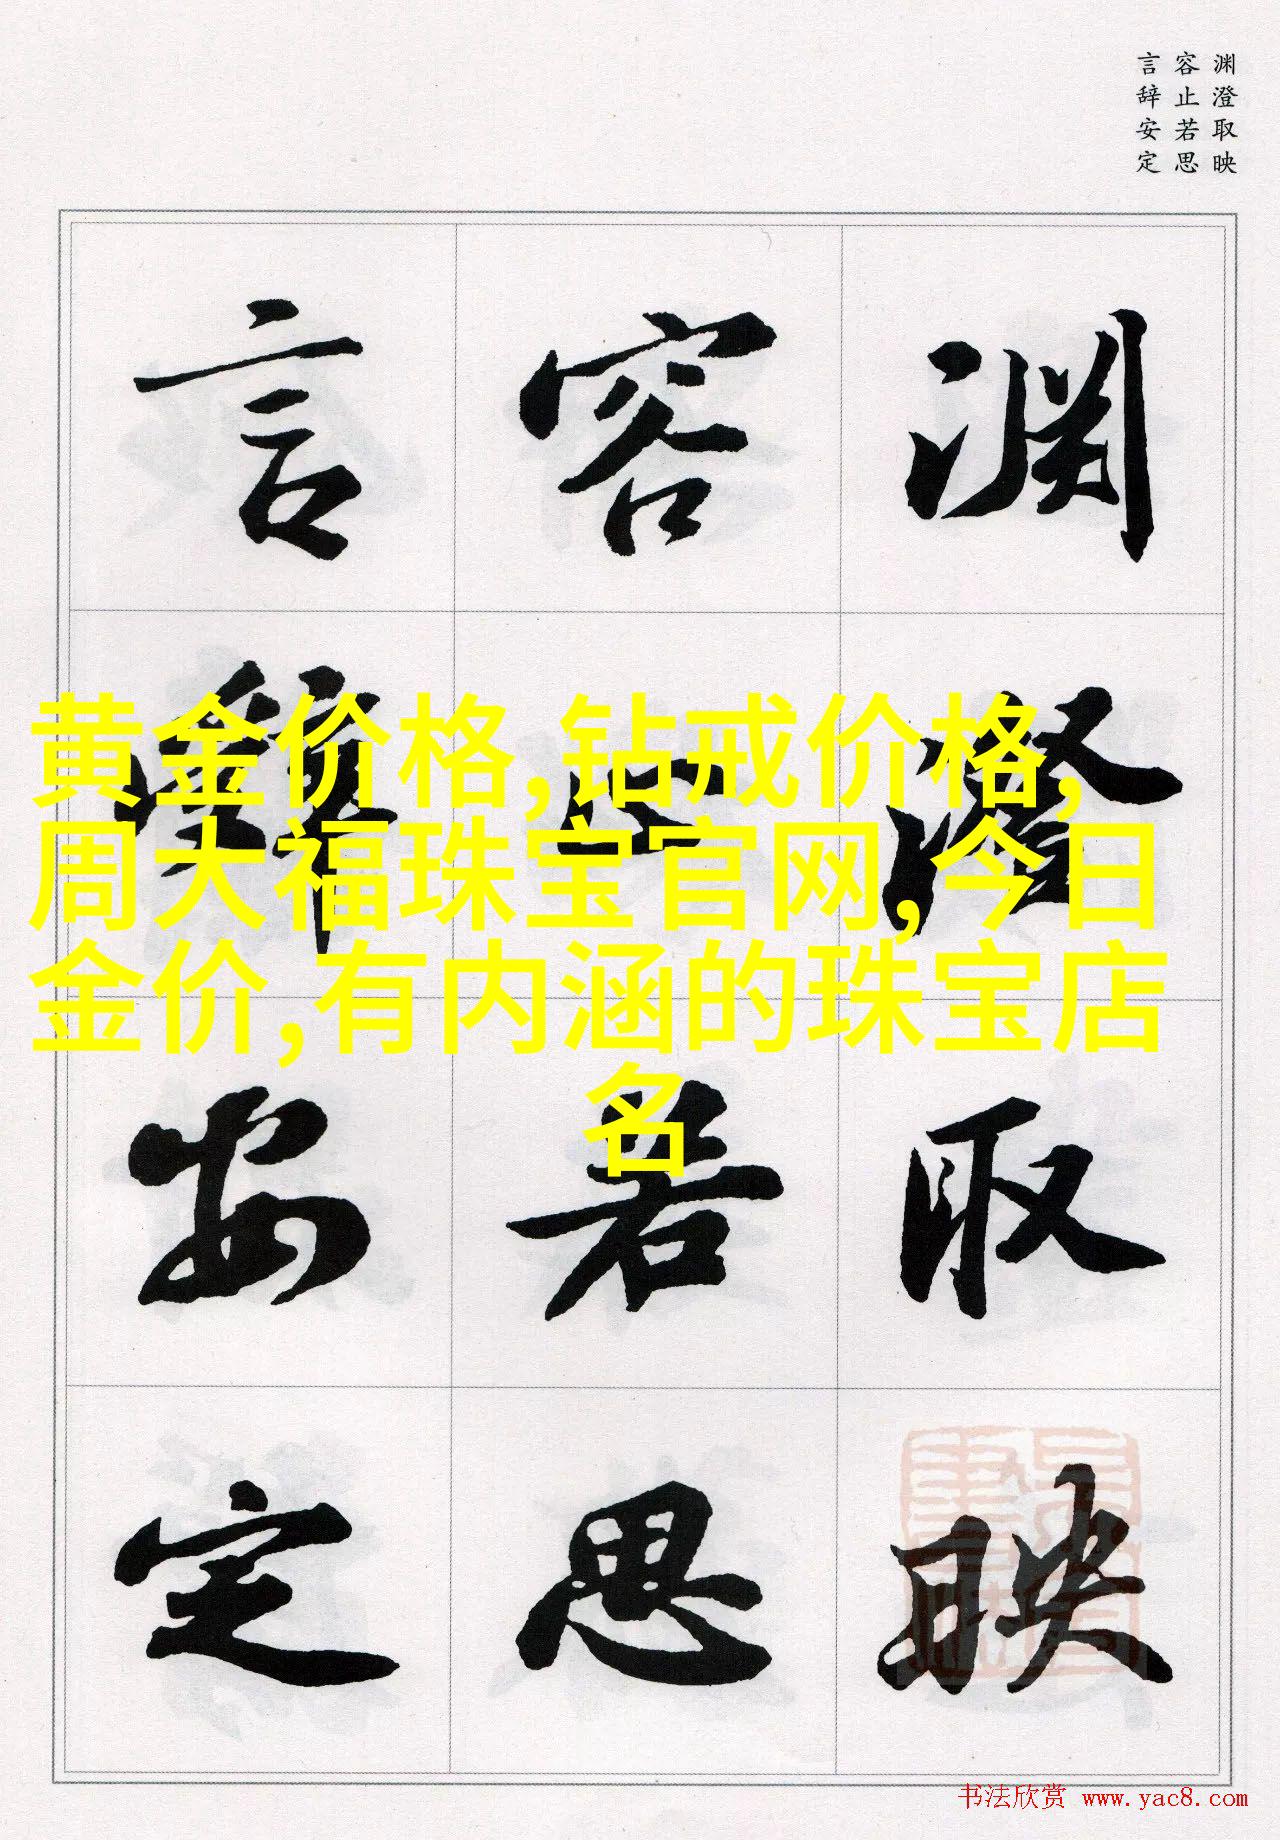 渊澄取映
容止若思
言辞安定
渊澄取映
容止若思
言辞安定
黄金价格,钻戒价格,
周大福珠宝官网,今日
金价,有内涵的珠宝店
名
书法欣赏 www.yac8.com